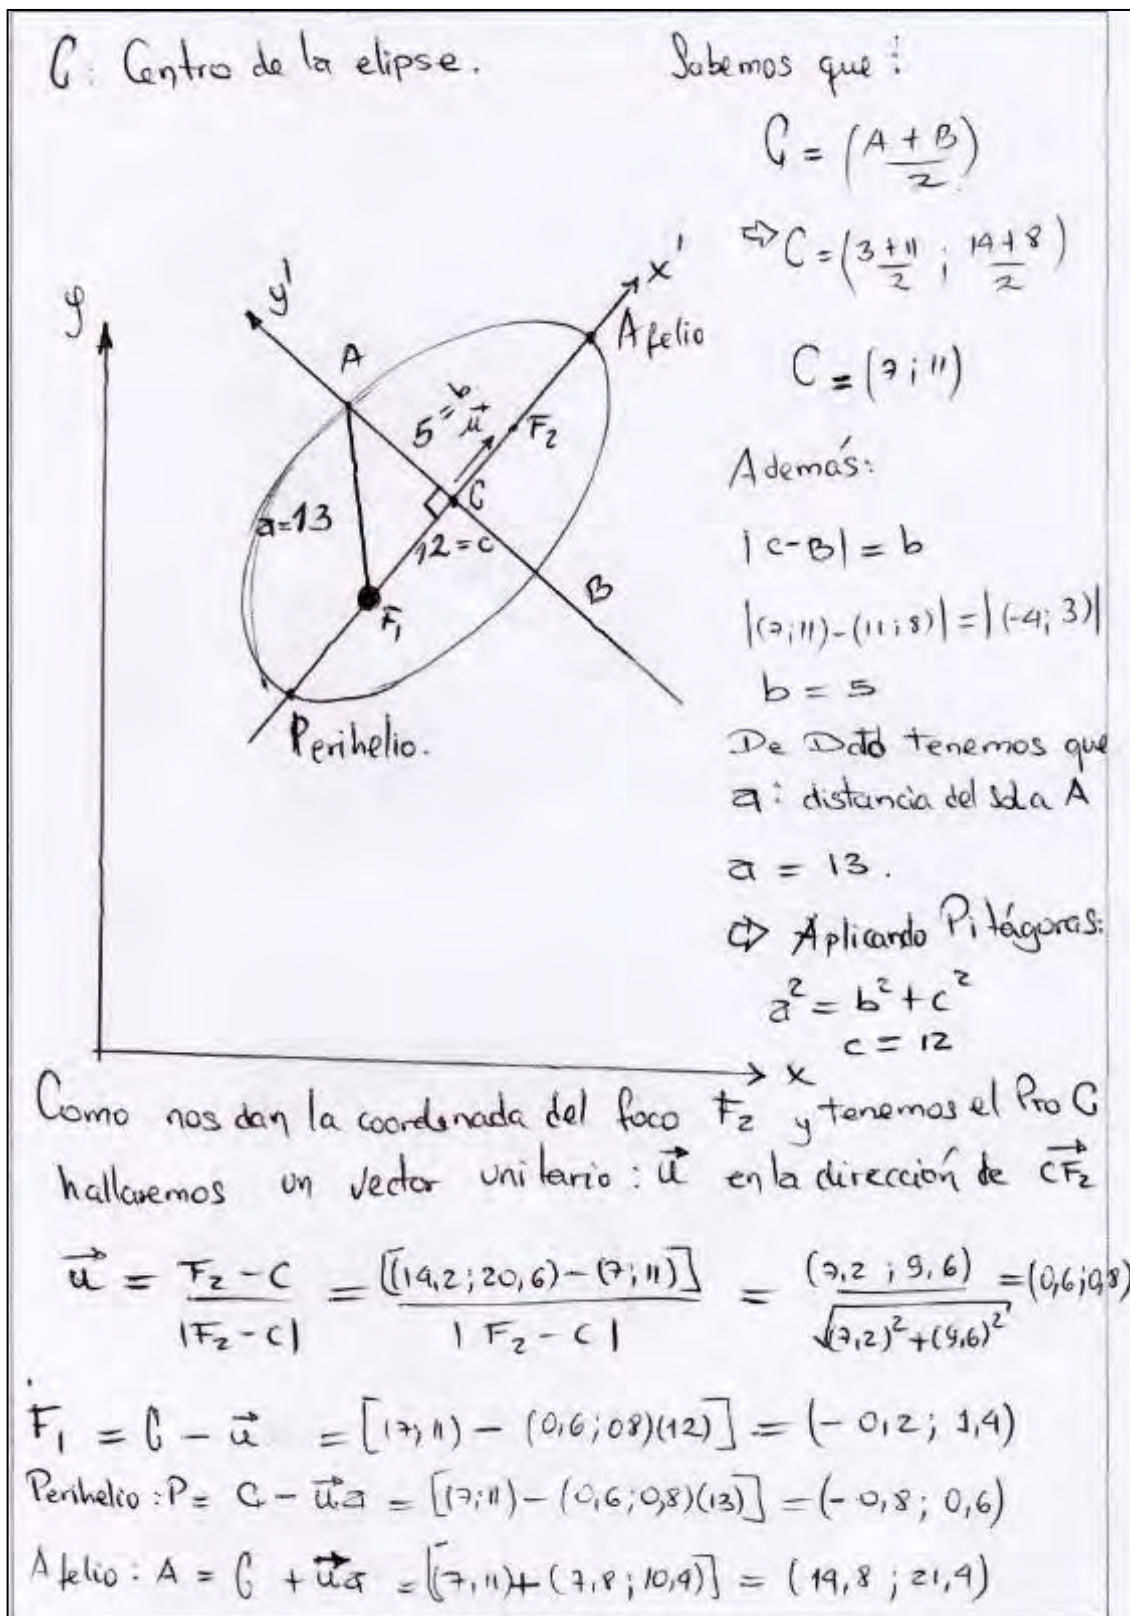 C: Centro de la elipse.
Sabemos que:
C = (A + B / 2)
⇨ C = (3+11 / 2 ; 14+8 / 2)
C = (7; 11)
Además:
|C-B| = b
|(7;11)-(11;8)| = |(-4; 3)|
b = 5
De Dato tenemos que
a: distancia del sol a A
a = 13.
⇨ Aplicando Pitágoras:
a² = b² + c²
c = 12
y
y'
x'
A
Afelio
5 = b
u⃗
F₂
C
a=13
12 = c
F₁
B
Perihelio.
x
Como nos dan la coordenada del foco F₂ y tenemos el Pto C
hallaremos un vector unitario: u⃗ en la dirección de CF₂
u⃗ = F₂ - C / |F₂ - C| = [(14,2; 20,6) - (7; 11)] / |F₂ - C| = (7,2 ; 9,6) / √(7,2)² + (9,6)² = (0,6;0,8)
F₁ = C - u⃗ = [(7; 11) - (0,6; 08)(12)] = (-0,2; 1,4)
Perihelio: P = C - u⃗a = [(7;11) - (0,6; 0,8)(13)] = (-0,8; 0,6)
Afelio: A = C + u⃗a = [(7, 11) + (7,8; 10,4)] = (14,8 ; 21,4)